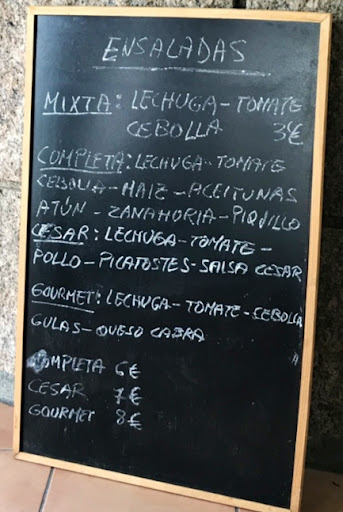 ENSALADAS
MIXTA: LECHUGA-TOMATE
CEBOLLA 3€
COMPLETA: LECHUGA-TOMATE
CEBOLLA-MAIZ-ACEITUNAS
ATÚN-ZANAHORIA-PIQUILLO
CESAR: LECHUGA-TOMATE-
POLLO-PICATOSTES-SALSA CESAR
GOURMET: LECHUGA-TOMATE-CEBOLLA
GULAS-QUESO CABRA
COMPLETA 6€
CESAR 7€
GOURMET 8€